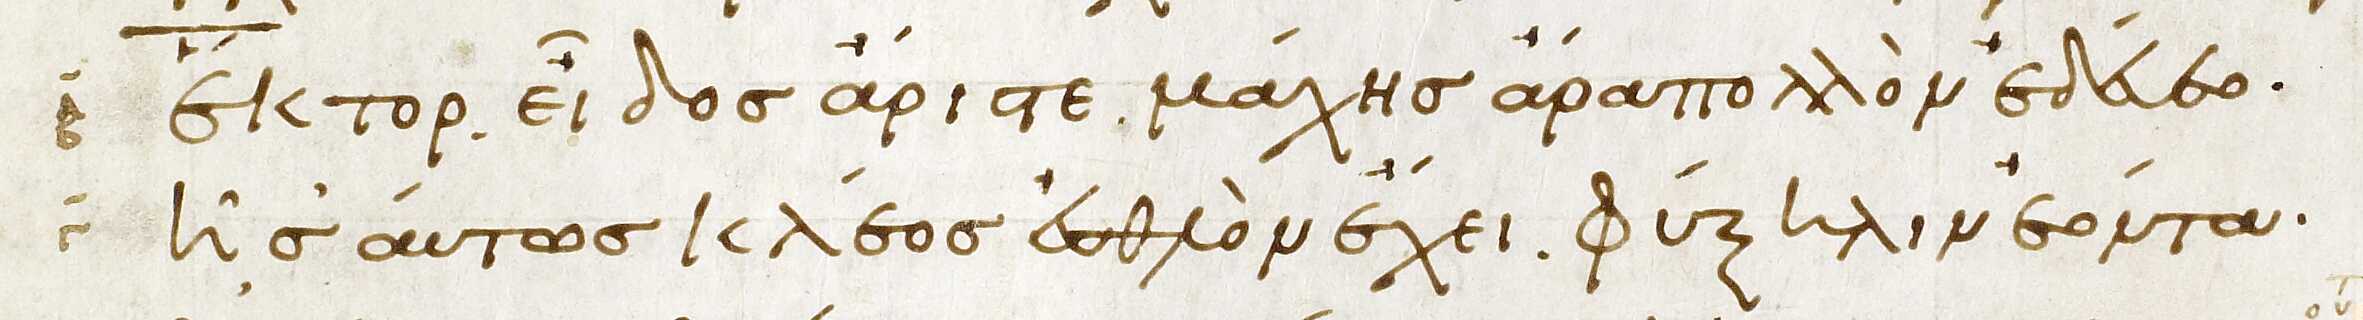 β̄ ἕκτορ. εἶδος ἄριστε. μάχης ἄρα πολλὸν ἐδεύεο.
γ̄ ἦ σ' αὔτως κλέος ἐσθλὸν ἔχει. φύξηλιν ἐόντα.